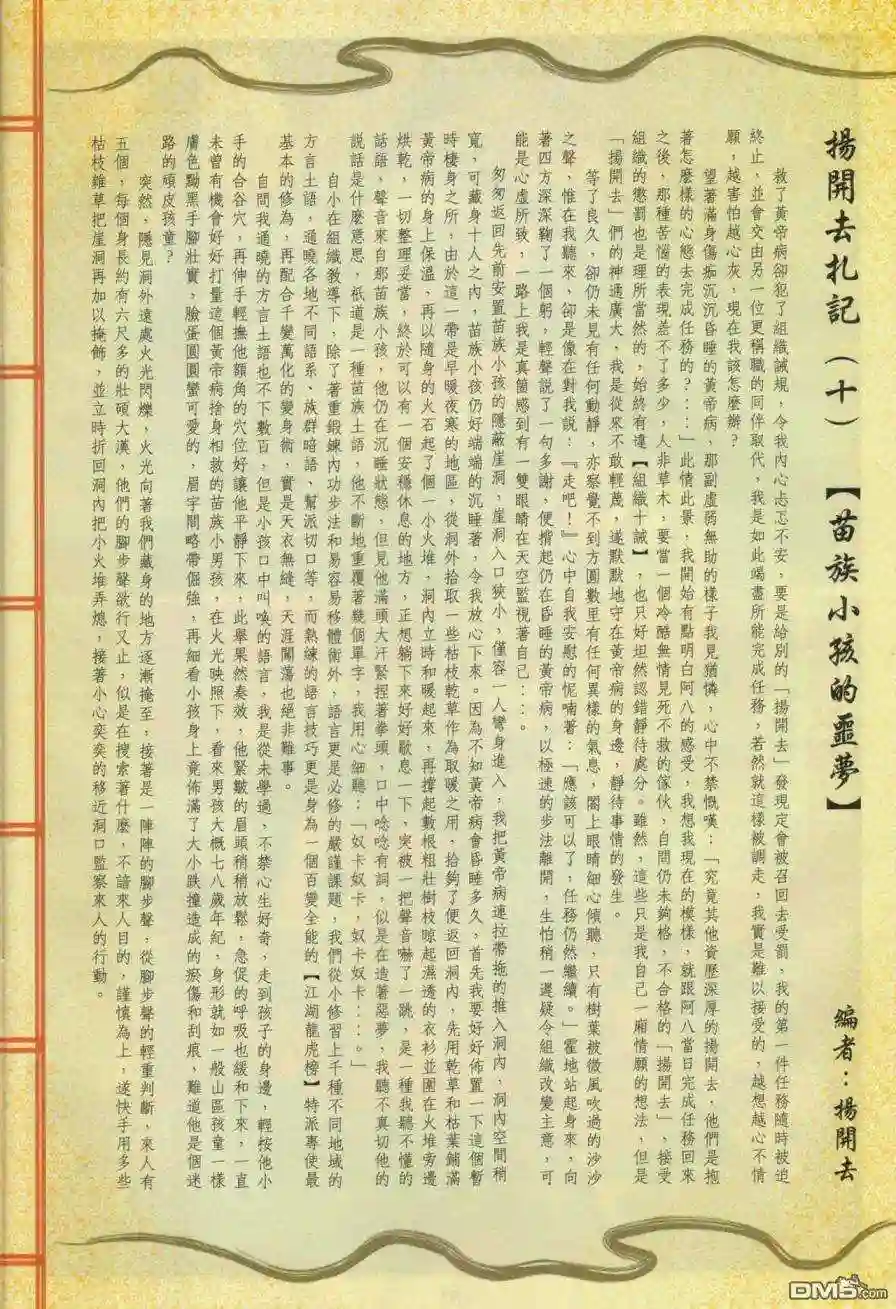 揚開去札記（十）【苗族小孩的噩夢】　編者：揚開去
救了黃帝病卻犯了組織誡規，令我內心忐忑不安，要是給別的「揚開去」發現定會被召回去受罰，我的第一件任務隨時被迫
終止，並會交由另一位更稱職的同伴取代，我是如此竭盡所能完成任務，若然就這樣被調走，我實是難以接受的，越想越心不情
願，越害怕越心灰，現在我該怎麼辦？
望著滿身傷痂沉沉昏睡的黃帝病，那副虛弱無助的樣子我見猶憐，心中不禁慨嘆：「究竟其他資歷深厚的揚開去，他們是抱
著怎麼樣的心態去完成任務的？：：」此情此景，我開始有點明白阿八的感受，我想我現在的模樣，就跟阿八當日完成任務回來
之後，那種苦惱的表現差不了多少，人非草木，要當一個冷酷無情見死不救的傢伙，自問仍未夠格，不合格的「揚開去」，接受
組織的懲罰也是理所當然的，始終有違【組織十誡】，也只好坦然認錯靜待處分。雖然，這些只是我自己一廂情願的想法，但是
「揚開去」們的神通廣大，我是從來不敢輕蔑，遂默默地守在黃帝病的身邊，靜待事情的發生。
等了良久，卻仍未見有任何動靜，亦察覺不到方圓數里有任何異樣的氣息，閣上眼睛細心傾聽，只有樹葉被微風吹過的沙沙
之聲，惟在我聽來，卻是像在對我說：『走吧！』心中自我安慰的怩喃著：「應該可以了，任務仍然繼續。」霍地站起身來，向
著四方深深鞠了一個躬，輕聲說了一句多謝，便揹起仍在昏睡的黃帝病，以極速的步法離開，生怕稍一遲疑令組織改變主意，可
能是心虛所致，一路上我是真箇感到有一雙眼睛在天空監視著自己：：。
匆匆返回先前安置苗族小孩的隱蔽崖洞，崖洞入口狹小，僅容一人彎身進入，我把黃帝病連拉帶拖的推入洞內，洞內空間稍
寬，可藏身十人之內，苗族小孩仍好端端的沉睡著，令我放心下來。因為不知黃帝病會昏睡多久，首先我要好好佈置一下這個暫
時棲身之所，由於這一帶是早暖夜寒的地區，從洞外拾取一些枯枝乾草作為取暖之用，拾夠了便返回洞內，先用乾草和枯葉鋪滿
黃帝病的身上保溫，再以隨身的火石起了個一小火堆，洞內立時和暖起來，再撐起數根粗壯樹枝晾起濕透的衣衫並圍在火堆旁邊
烘乾，一切整理妥當，終於可以有一個安穩休息的地方，正想躺下來好好歇息一下，突被一把聲音嚇了一跳，是一種我聽不懂的
話語，聲音來自那苗族小孩，他仍在沉睡狀態，但見他滿頭大汗緊捏著拳頭，口中唸唸有詞，似是在造著惡夢，我聽不真切他的
說話是什麼意思，祇道是一種苗族土語，他不斷地重覆著幾個單字，我用心細聽：「奴卡奴卡，奴卡奴卡：：。」
自小在組織教導下，除了著重鍛鍊內功步法和易容易移體術外，語言更是必修的嚴謹課題，我們從小修習上千種不同地域的
方言土語，通曉各地不同語系、族群暗語、幫派切口等，而熟練的語言技巧更是身為一個百變全能的【江湖龍虎榜】特派專使最
基本的修為，再配合千變萬化的變身術，實是天衣無縫，天涯闖蕩也絕非難事。
自問我通曉的方言土語也不下數百，但是小孩口中叫喚的語言，我是從未學過，不禁心生好奇，走到孩子的身邊，輕按他小
手的合谷穴，再伸手輕撫他額角的穴位好讓他平靜下來，此舉果然奏效，他緊皺的眉頭稍稍放鬆，急促的呼吸也緩和下來，一直
未曾有機會好好打量這個黃帝病捨身相救的苗族小男孩，在火光映照下，看來男孩大概七八歲年紀，身形就如一般山區孩童一樣
膚色黝黑手腳壯實，臉蛋圓圓蠻可愛的，眉宇間略帶倔強，再細看小孩身上竟佈滿了大小跌撞造成的瘀傷和刮痕，難道他是個迷
路的頑皮孩童？
突然，隱見洞外遠處火光閃爍，火光向著我們藏身的地方逐漸掩至，接著是一陣陣的腳步聲，從腳步聲的輕重判斷，來人有
五個，每個身長約有六尺多的壯碩大漢，他們的腳步聲欲行又止，似是在搜索著什麼，不諳來人目的，謹慎為上，遂快手用多些
枯枝雜草把崖洞再加以掩飾，並立時折回洞內把小火堆弄熄，接著小心奕奕的移近洞口監察來人的行動。
DM5.com